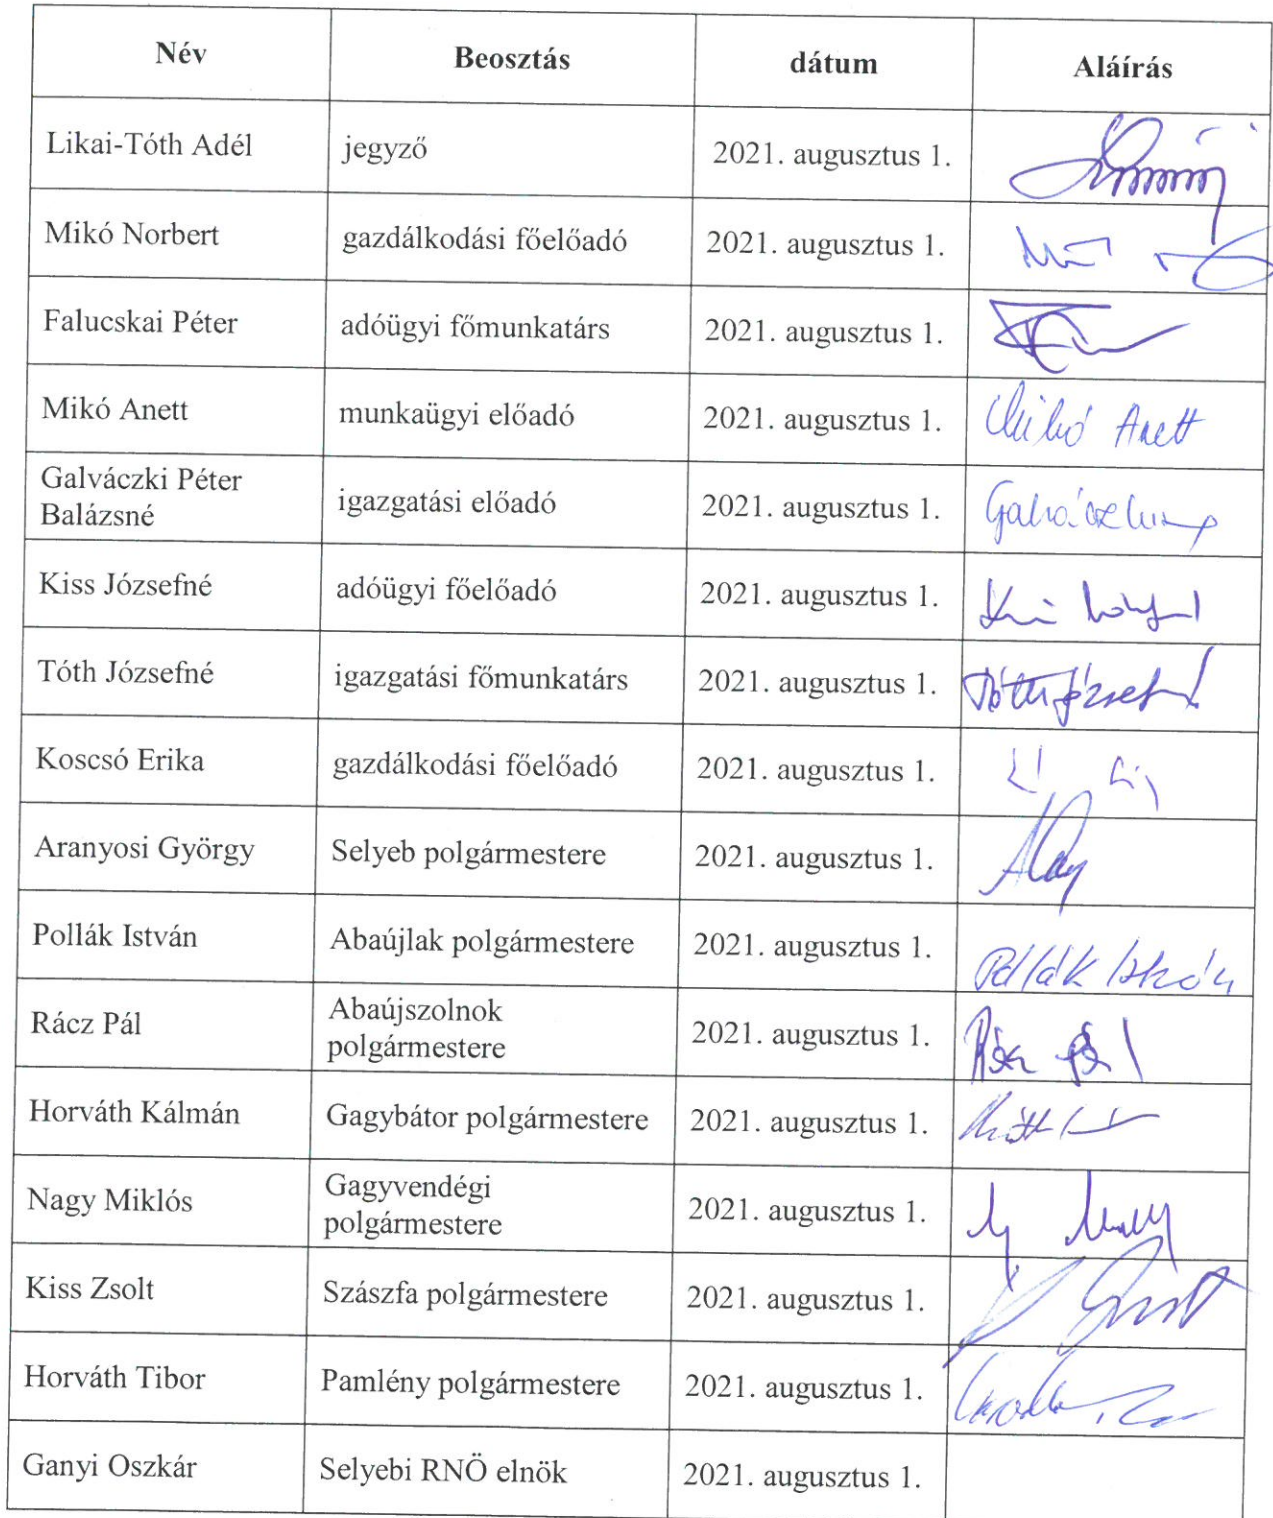 Név Beosztás dátum Aláírás
Likai-Tóth Adél jegyző 2021. augusztus 1.
Mikó Norbert gazdálkodási főelőadó 2021. augusztus 1.
Falucskai Péter adóügyi főmunkatárs 2021. augusztus 1.
Mikó Anett munkaügyi előadó 2021. augusztus 1. Mikó Anett
Galváczki Péter
Balázsné igazgatási előadó 2021. augusztus 1.
Kiss Józsefné adóügyi főelőadó 2021. augusztus 1.
Tóth Józsefné igazgatási főmunkatárs 2021. augusztus 1. Tóth Józsefné
Koscsó Erika gazdálkodási főelőadó 2021. augusztus 1.
Aranyosi György Selyeb polgármestere 2021. augusztus 1.
Pollák István Abaújlak polgármestere 2021. augusztus 1. Pollák István
Rácz Pál Abaújszolnok
polgármestere 2021. augusztus 1. Rácz Pál
Horváth Kálmán Gagybátor polgármestere 2021. augusztus 1.
Nagy Miklós Gagyvendégi
polgármestere 2021. augusztus 1.
Kiss Zsolt Szászfa polgármestere 2021. augusztus 1.
Horváth Tibor Pamlény polgármestere 2021. augusztus 1.
Ganyi Oszkár Selyebi RNÖ elnök 2021. augusztus 1.